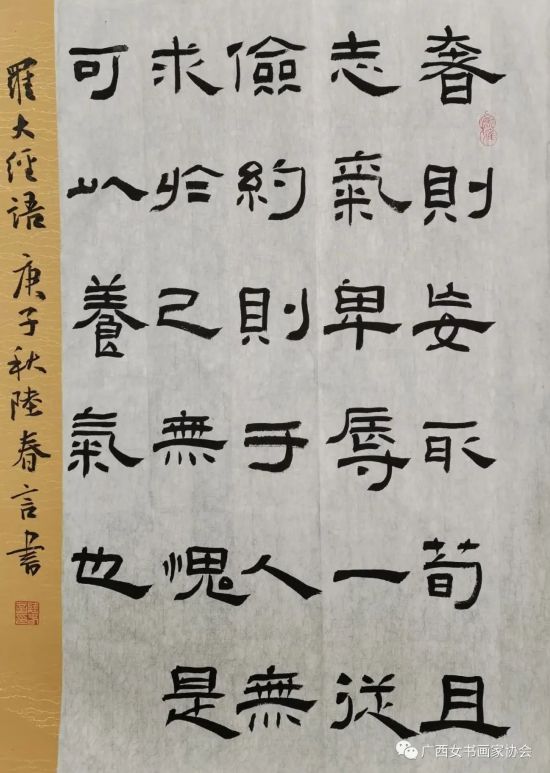 奢則妄取苟且
志氣卑辱一從
儉約則于人無
求於己無愧是
可以養氣也
羅大經語 庚子秋陸春言書
广西女书画家协会